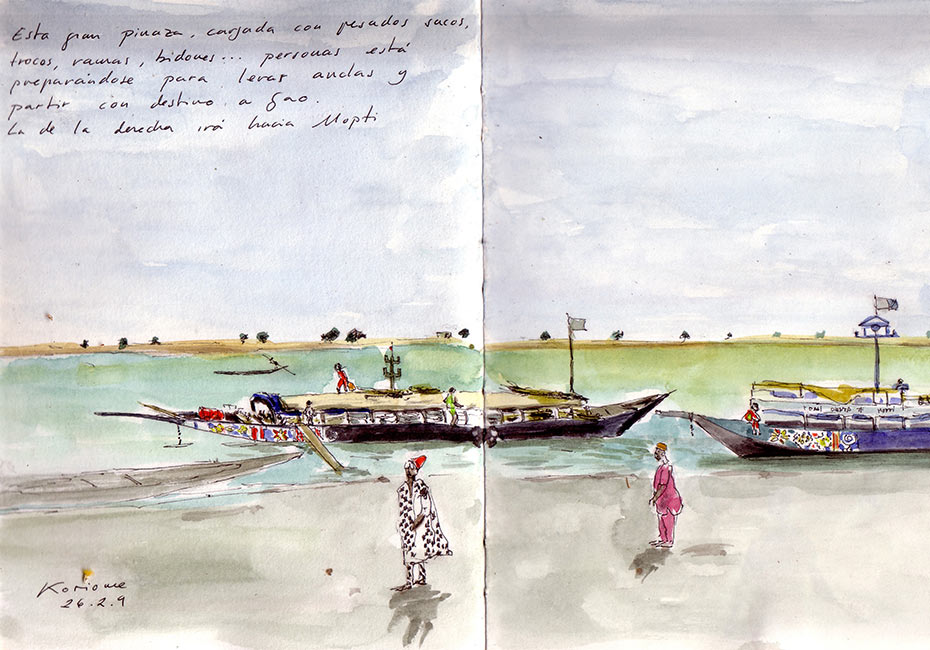 Esta gran pinaza, cargada con pesados sacos,
trocos, ramas, bidones... personas está
preparándose para levar anclas y
partir con destino a Gao.
La de la derecha irá hacia Mopti
Korioume
26.2.9